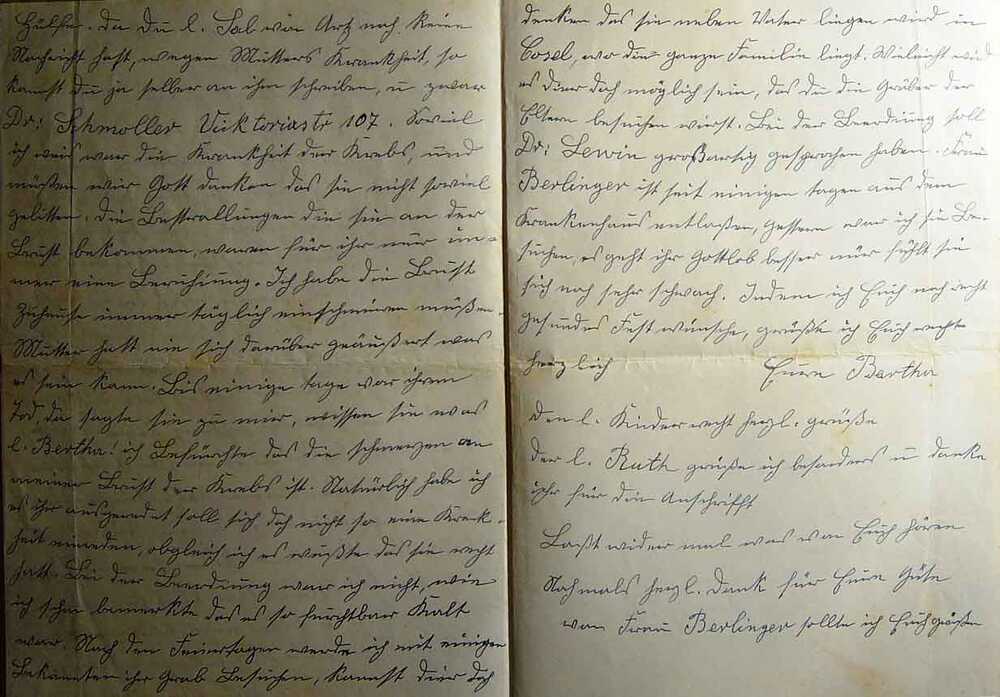 Hülfe. da Du l. Sal von Arzt noch Keine
Nachricht hast, wegen Mutters Krankheit, so
kanst Du ja selber an ihm schreiben, u zwar
Dr: Schmoller Vicktoriastr 107. Soviel
ich weis war die Krankheit der Krebs, und
müßen wir Gott danken das sie nicht soviel
gelitten. die Bestrallungen die sie an der
Brust bekommen, waren für ihr nur im=
mer eine Beruhigung. Ich habe die Brust
Zuhause immer täglich einschmiren müßen.
Mutter hatt nie sich darüber geäußert was
es sein kann. Bis einige tage vor ihren
Tod, da sagte sie zu mir, wissen sie was
l. Bertha! ich Befürchte das die schmerzen an
meiner Brust der Krebs ist. Natürlich habe ich
es ihr ausgeredet soll sich doch nicht so eine Krank=
heit einreden, obgleich ich es wußte das sie recht
hatt. Bei der Beerdigung war ich nicht, wie
ich schon bemerkte das es so furchtbar Kalt
war. Nach den Feiertagen werde ich mit einigen
Bekannten ihr Grab Besuchen, kannst dir doch
denken das sie neben Vater liegen wird in
Cosel, wo die ganze Familie liegt. Vieleicht wird
es dier doch möglich sein, das du die Gräber der
Eltern besuchen wirst. Bei der Beerdiung soll
Dr: Lewin großartig gesprochen haben. Frau
Berlinger ist seit einigen tagen aus dem
Krankenhaus entlaßen, gestern war ich sie Be=
suchen, es geht ihr Gottlob besser nur fühlt sie
sich noch sehr schwach. Indem ich Euch noch recht
gesundes Fest wünsche, grüße ich Euch rechte
herzlich Eure Bertha
den l. Kinder recht herzl. grüße
der l. Ruth grüße ich besonders u danke
ihr für die Anschrifft
Laßt wieder mal was von Euch hören
Nochmals herzl. Dank für Eure Güte
von Frau Berlinger sollte ich Euch grüßen